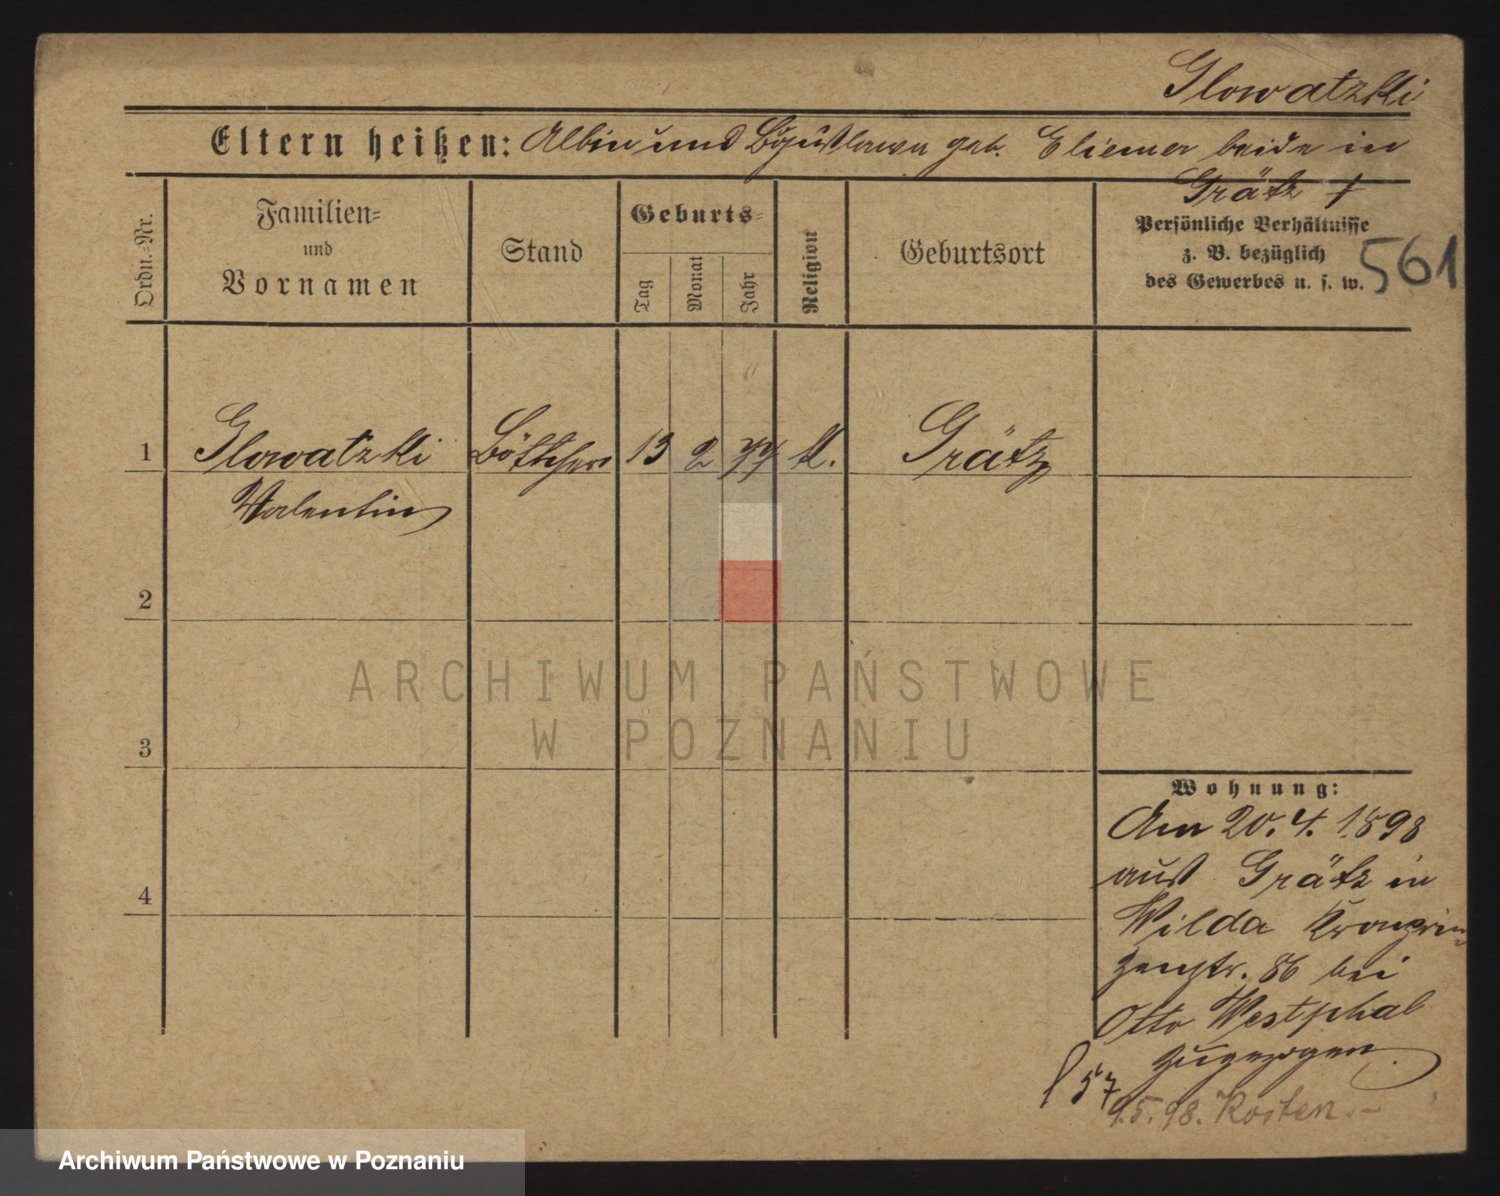 Glowatzki
Eltern heißen: Albin und geb. beide in
Grätz †
Ordn.-Nr.
Familien-
und
Vornamen
Stand
Geburts-
Tag
Monat
Jahr
Religion
Geburtsort
Persönliche Verhältnisse
z. B. bezüglich
des Gewerbes u. s. w.
561
1 Glowatzki Böttcher 13 2 77 k. Grätz
Valentin
2
3
4
Wohnung:
Am 20. 4. 1898
aus Grätz in
Wilda Kronprin-
zenstr. 86 bei
Otto Westphal
zugezogen.
57
9.5.98. Kosten.-
ARCHIWUM PAŃSTWOWE
W POZNANIU
Archiwum Państwowe w Poznaniu